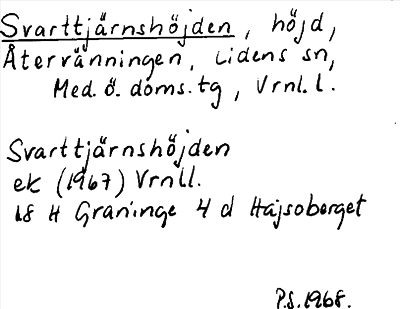 Svarttjärnshöjden, höjd,
Återvänningen, Lidens sn,
Med. Ö. doms.tg, Vrnl. l.
Svarttjärnshöjden
ek (1967) Vrnll.
18 H Graninge 4 d Hajsoberget
P.S. 1968.